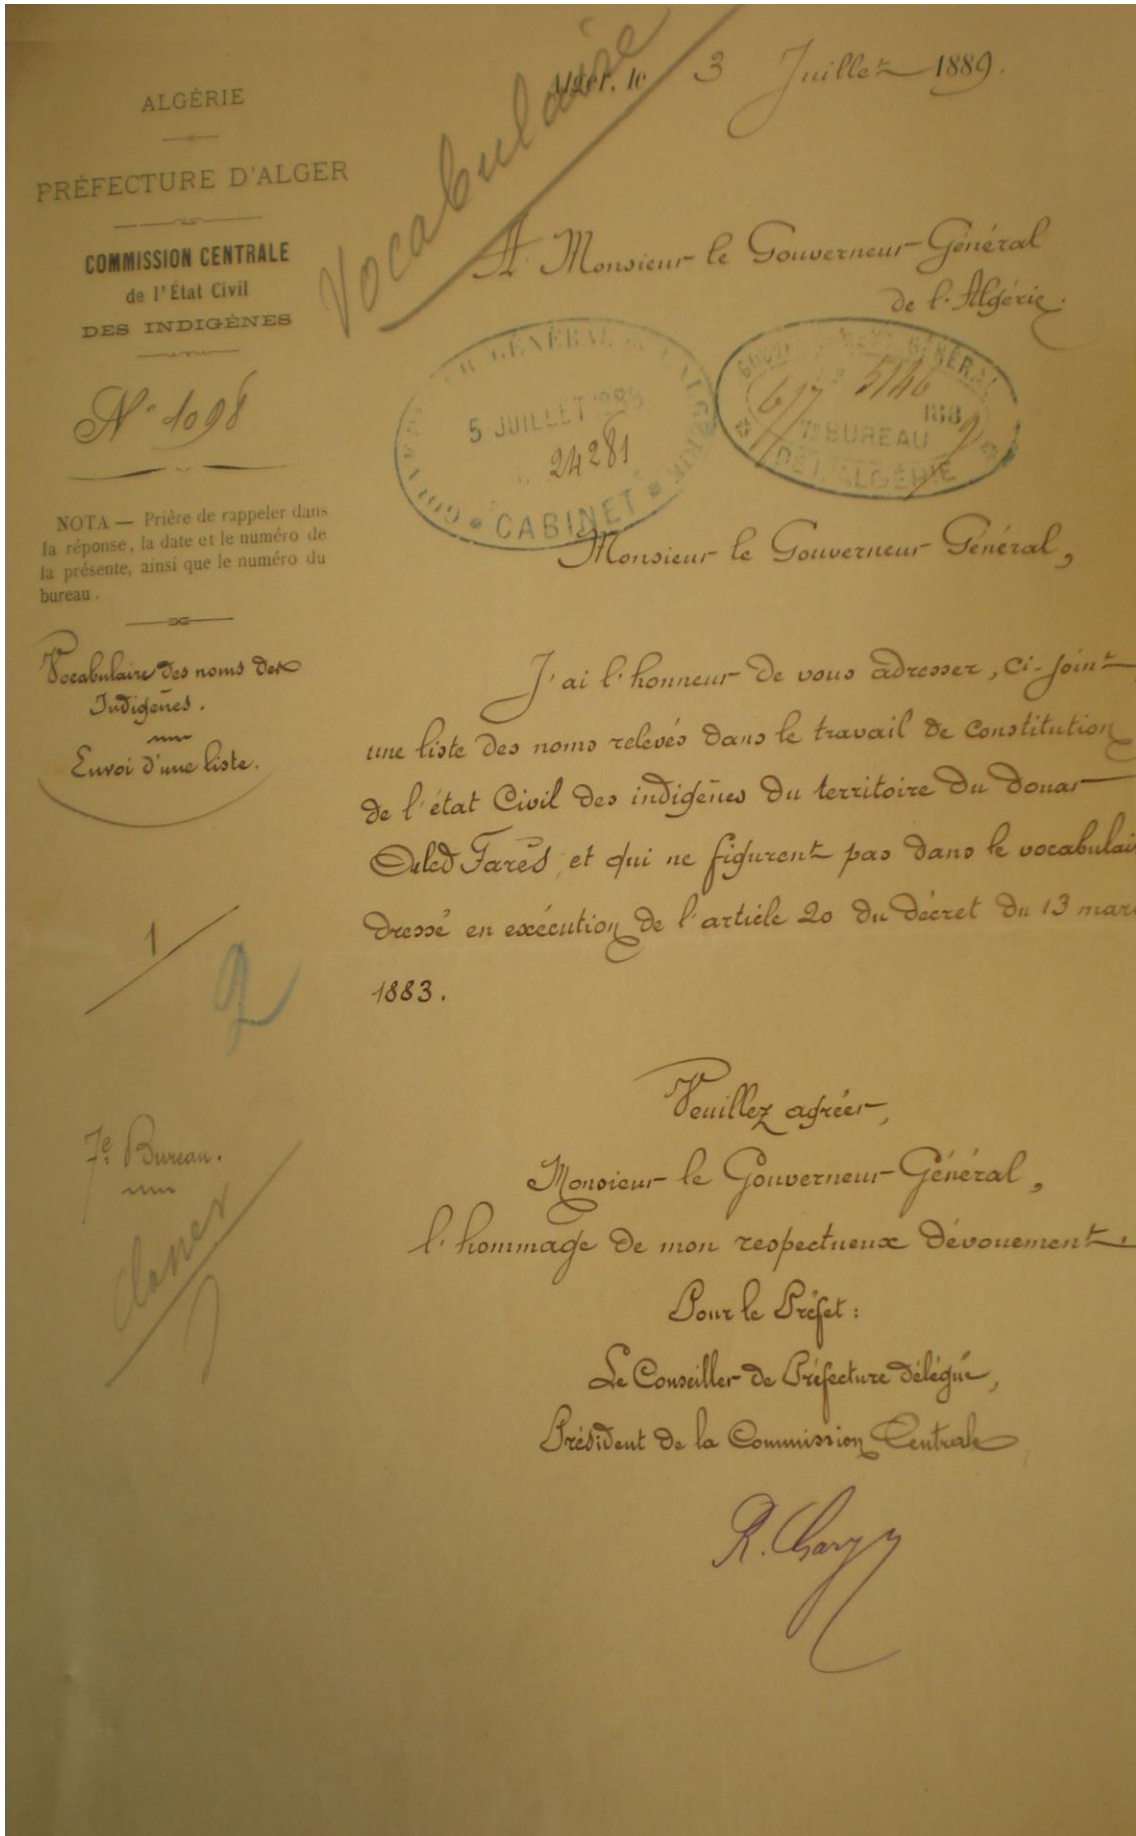 ALGÉRIE
PRÉFECTURE D'ALGER
COMMISSION CENTRALE
de l'État Civil
DES INDIGÈNES
N° 1098
NOTA — Prière de rappeler dans
la réponse, la date et le numéro de
la présente, ainsi que le numéro du
bureau.
Vocabulaire des noms des
Indigènes.
Envoi d'une liste.
1
2
7e Bureau.
Classer
Vocabulaire
Alger, le 3 Juillet 1889.
A Monsieur le Gouverneur Général
de l'Algérie.
GÉNÉRAL DE L'ALGÉRIE
5 JUILLET 1889
24281
CABINET
GOUVERNEMENT GÉNÉRAL
5146
617
188
7e BUREAU
DE L'ALGÉRIE
Monsieur le Gouverneur Général,
J'ai l'honneur de vous adresser, ci-joint
une liste des noms relevés dans le travail de constitution
de l'état Civil des indigènes du territoire du douar
Ouled Farès, et qui ne figurent pas dans le vocabulai
dressé en exécution de l'article 20 du décret du 13 mars
1883.
Veuillez agréer,
Monsieur le Gouverneur Général,
l'hommage de mon respectueux dévouement.
Pour le Préfet :
Le Conseiller de Préfecture délégué,
Président de la Commission Centrale
R.